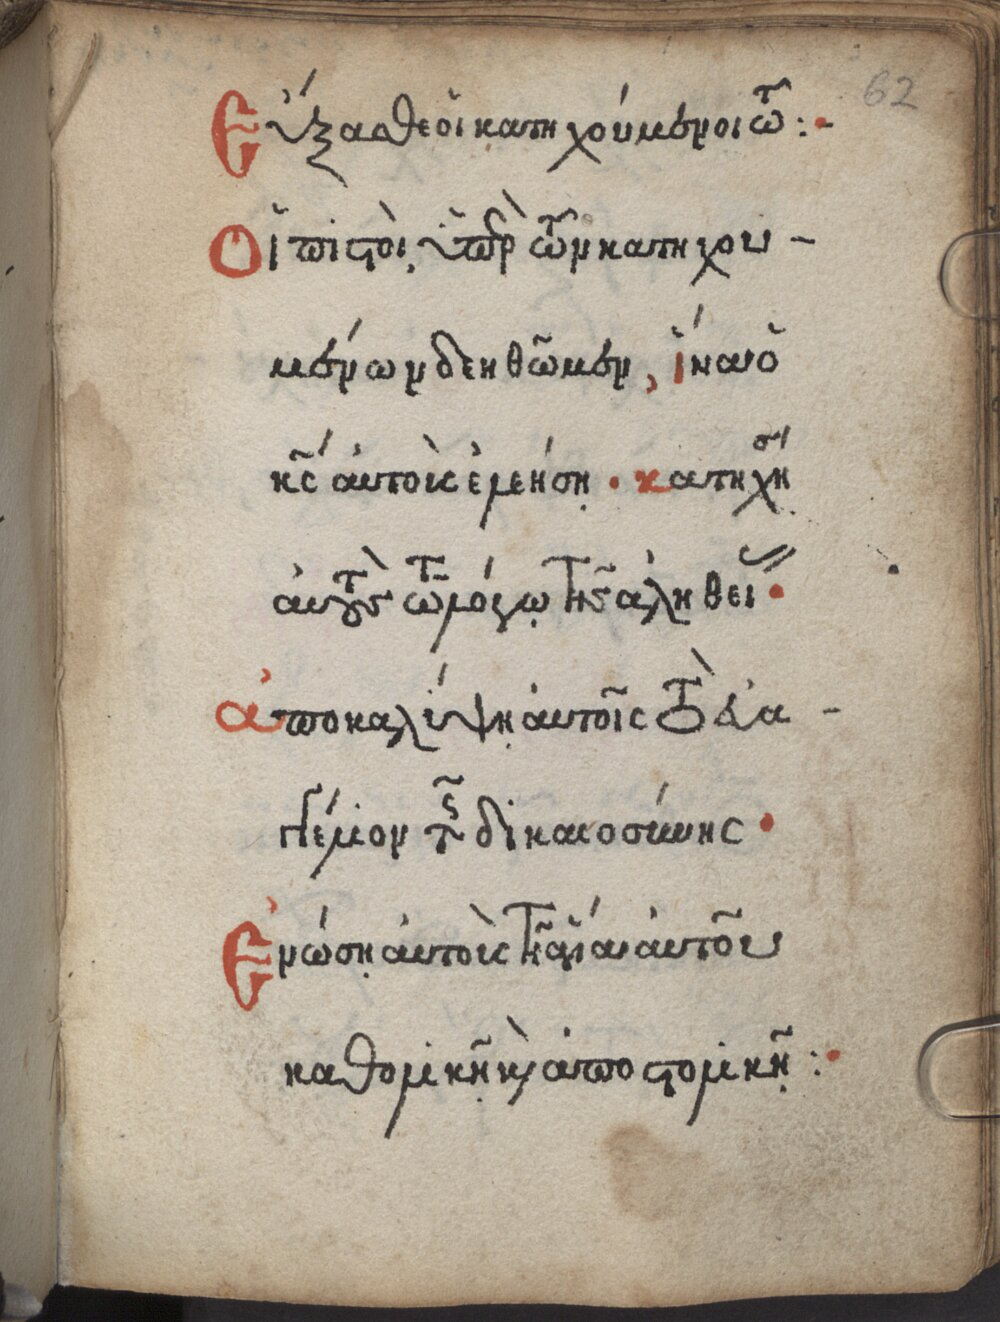 62
Εύξασθε οἱ κατηχούμενοι τῶ :-
Οἱ πιστοὶ, ὑπὲρ τῶν κατηχου -
μένων δεηθῶμεν, ἵνα ὁ
κ̅ς αὐτοὺς ἐλεήση · κατηχήση
αὐτοὺς τὸν λόγον τῆς ἀληθείας ·
ἀποκαλύψη αὐτοῖς τὸ εὐα -
γγέλιον τῆς δικαιοσύνης ·
Ενώση αὐτοὺς τῆ ἁγία αὐτοῦ
καθολικῆ κὶ ἀποστολικῆ :·